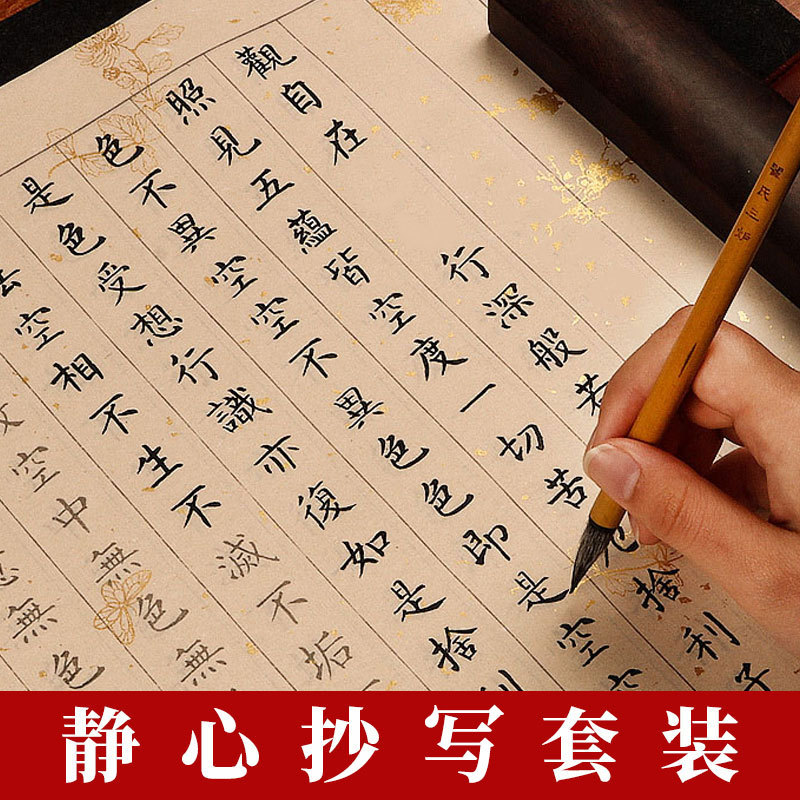 觀自在行深般若
照見五蘊皆空度一切苦厄捨利子
色不異空空不異色色即是空空
是色受想行識亦復如是捨利
空相不生不滅不垢
空中無色無
無色
静心抄写套装